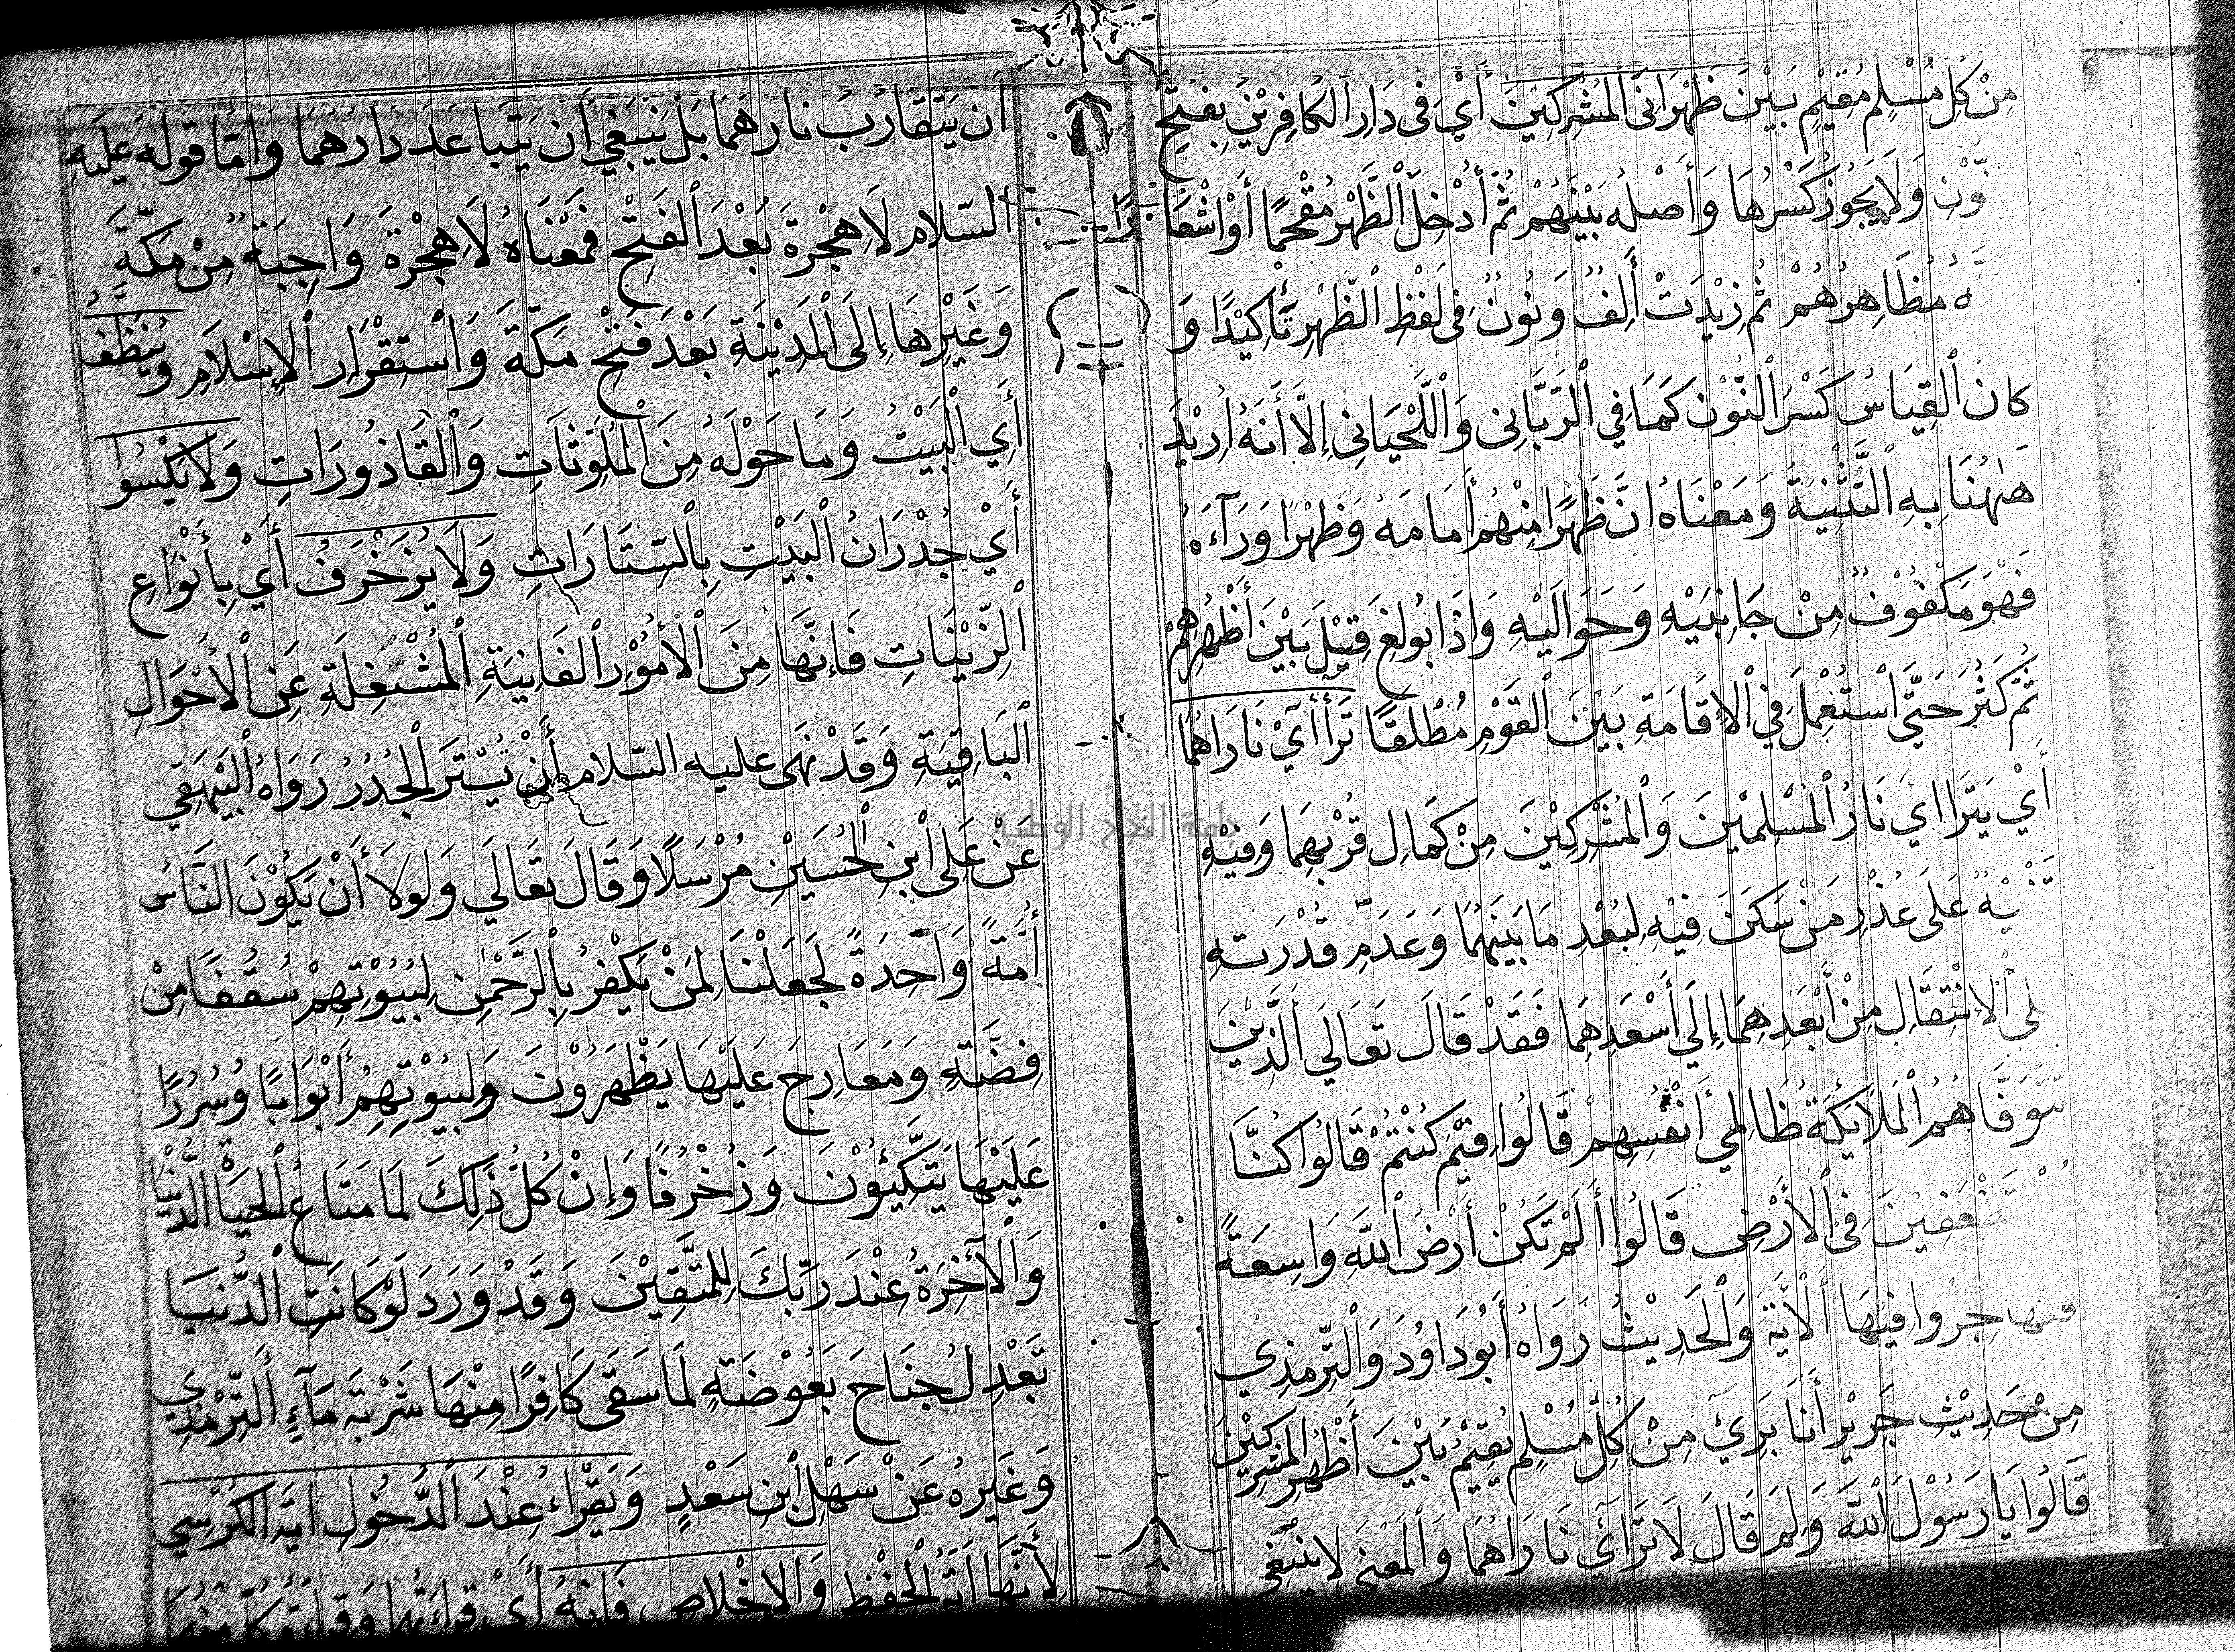 مِنْ كُلِّ مُسْلِمٍ مُقِيْمٍ بَيْنَ ظَهْرَانَى الْمُشْرِكِيْنَ أَيْ فِى دَارِ الْكَافِرِيْنَ بِفَتْحِ
نُّوْنِ وَلَا يَجُوْزُ كَسْرُهَا وَأَصْلُهُ بَيْنَهُمْ ثُمَّ أُدْخِلَ الْظَّهْرُ مُقْحَمًا أَوْ اشْعَارًا
نَّهُ مُظَاهِرُهُمْ ثُمَّ زِيْدَتْ أَلِفٌ وَنُوْنٌ فِى لَفْظِ الْظَّهْرِ تَأْكِيْدًا وَ
كَانَ الْقِيَاسُ كَسْرَ الْنُّوْنِ كَمَا فِي الْرَّبَّانِى وَالْلَّحْيَانِى إِلَّا أَنَّهُ أُرِيْدَ
هٰهُنَا بِهِ الْتَّثْنِيَةُ وَمَعْنَاهُ انَّ ظَهْرًا مِنْهُمْ أَمَامَهُ وَظَهْرًا وَرَآءَهُ
فَهُوَ مَكْفُوْفٌ مِنْ جَانِبَيْهِ وَحَوَالَيْهِ وَاذَا بُوْلِغَ قِيْلَ بَيْنَ أَظْهُرِهِمْ
ثُمَّ كَثُرَ حَتَّى اسْتُعْمِلَ فِي الْإِقَامَةِ بَيْنَ الْقَوْمِ مُطْلَقًا تَرَأَأَىْ نَارَاهُمَا
أَيْ يَتَرَااي نَارُ الْمُسْلِمِيْنَ وَالْمُشْرِكِيْنَ مِنْ كَمَالِ قُرْبِهِمَا وَفِيْهِ
تَنْبِيْهٌ عَلَى عُذْرِ مَنْ سَكَنَ فِيْهِ لِبُعْدِ مَا بَيْنَهُمَا وَعَدَمِ قُدْرَتِهِ
لى الْإِنْتِقَالِ مِنْ أَبْعَدِهِمَا إِلَى أَسْعَدِهِمَا فَقَدْ قَالَ تَعَالَى الَّذِيْنَ
تَتَوَفَّاهُمُ الْمَلَائِكَةُ ظَالِمِي أَنْفُسِهِمْ قَالُوا فِيْمَ كُنْتُمْ قَالُوا كُنَّا
تَضْعَفِيْنَ فِى الْأَرْضِ قَالُوا أَلَمْ تَكُنْ أَرْضُ اللهِ وَاسِعَةً
فتهاجِرُوا فِيْهَا الْأَيَةَ وَالْحَدِيْثُ رَوَاهُ أَبُوْ دَاوُدَ وَالْتِّرْمِذِي
مِنْ حَدِيْثِ جَرِيْرٍ أَنَا بَرِيْءٌ مِنْ كُلِّ مُسْلِمٍ يُقِيْمُ بَيْنَ أَظْهُرِ الْمُشْرِكِيْنَ
قَالُوا يَا رَسُوْلَ اللهِ وَلِمَ قَالَ لَا تَرَاأَيْ نَارَاهُمَا وَالْمَعْنَى لَا يَنْبَغِى
أَنْ يَتَقَارَبَ نَارُهُمَا بَلْ يَنْبَغِي أَنْ يَتَبَاعَدَ دَارُهُمَا وَأَمَّا قَوْلُهُ عَلَيْهِ
السّلام لَا هِجْرَةَ بَعْدَ الْفَتْحِ فَمَعْنَاهُ لَا هِجْرَةَ وَاجِبَةٌ مِنْ مَكَّةَ
وَغَيْرِهَا إِلَى الْمَدِيْنَةِ بَعْدَ فَتْحِ مَكَّةَ وَاسْتِقْرَارِ الْإِسْلَامِ وَيُنَظِّفُ
أَيِ الْبَيْتَ وَمَا حَوْلَهُ مِنَ الْمُلَوِّثَاتِ وَالْقَاذُوْرَاتِ وَلَا يَكْسُوا
أَيْ جُدْرَانُ الْبَيْتِ بِالْسّتَارَاتِ وَلَا يُزَخْرَفُ أَيْ بِأَنْوَاعِ
الْزِّيْنَاتِ فَإِنَّهَا مِنَ الْأُمُوْرِ الْفَانِيَةِ الْمُشْتَغِلَةِ عَنِ الْأَحْوَالِ
الْبَاقِيَةِ وَقَدْ نَهَى عليه السّلام أَنْ تُسْتَرَ الْجُدُرُ رَوَاهُ الْبَيْهَقِي
عَنْ عَلِى ابْنِ الْحُسَيْنِ مُرْسَلًا وَقَالَ تَعَالَى وَلَولَا أَنْ يَكُوْنَ النَّاسُ
أُمَّةً وَاحِدَةً لَجَعَلْنَا لِمَنْ يَكْفُرُ بِالْرَّحْمٰنِ لِبُيُوْتِهِمْ سُقُفًا مِنْ
فِضَّةٍ وَمَعَارِجَ عَلَيْهَا يَظْهَرُوْنَ وَلِبُيُوْتِهِمْ أَبْوَابًا وَسُرُرًا
عَلَيْهَا يَتَّكِئُوْنَ وَزُخْرُفًا وَإِنْ كُلُّ ذٰلِكَ لَمَا مَتَاعُ الْحَيَاةِ الْدُّنْيَا
وَالْآخِرَةُ عِنْدَ رَبِّكَ لِلْمُتَّقِيْنَ وَقَدْ وَرَدَ لَوْ كَانَتِ الْدُّنْيَا
تَعْدِلُ جَنَاحَ بَعُوْضَةٍ لَمَا سَقَى كَافِرًا مِنْهَا شَرْبَةَ مَآءٍ الْتِّرْمِذِي
وَغَيْرُهُ عَنْ سَهْلِ ابْنِ سَعْدٍ وَيَقْرَاءُ عِنْدَ الْدُّخُوْلِ ايَةَ الْكُرْسِي
لِأَنَّهَا أيَةُ الْحِفْظِ وَالاخْلَاصَ فَإِنَّهُ أَيْ قِرَاءَتُهَا وَقِرَاءَةُ كُلٍّ مِنْهُمَا
جامعة النجاح الوطنية